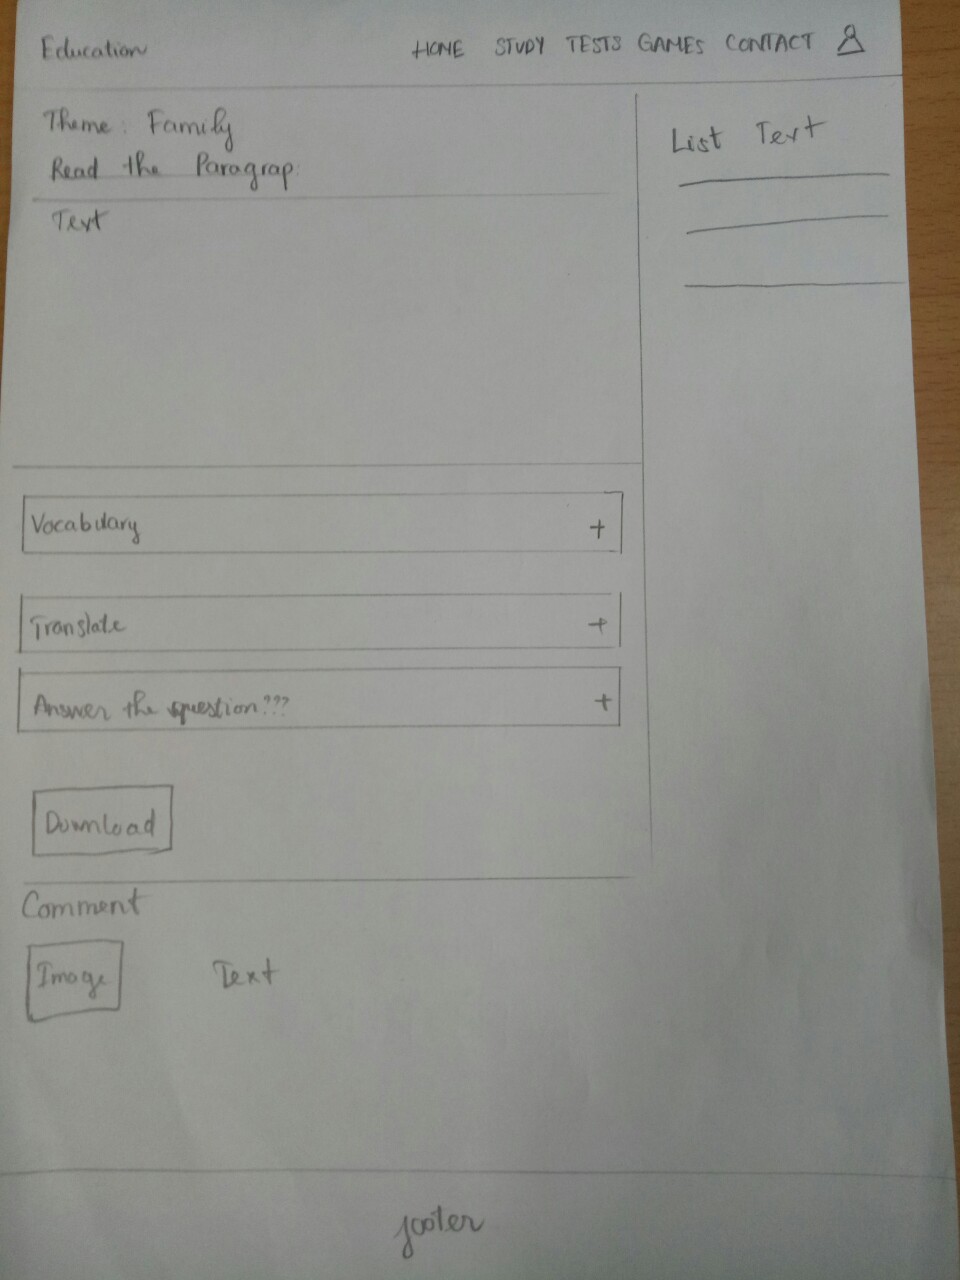 Education HOME STUDY TESTS GAMES CONTACT
Theme: Family
Read the Paragrap.
Text
List Text
Vocabulary +
Translate +
Answer the question??? +
Download
Comment
Image Text
footer